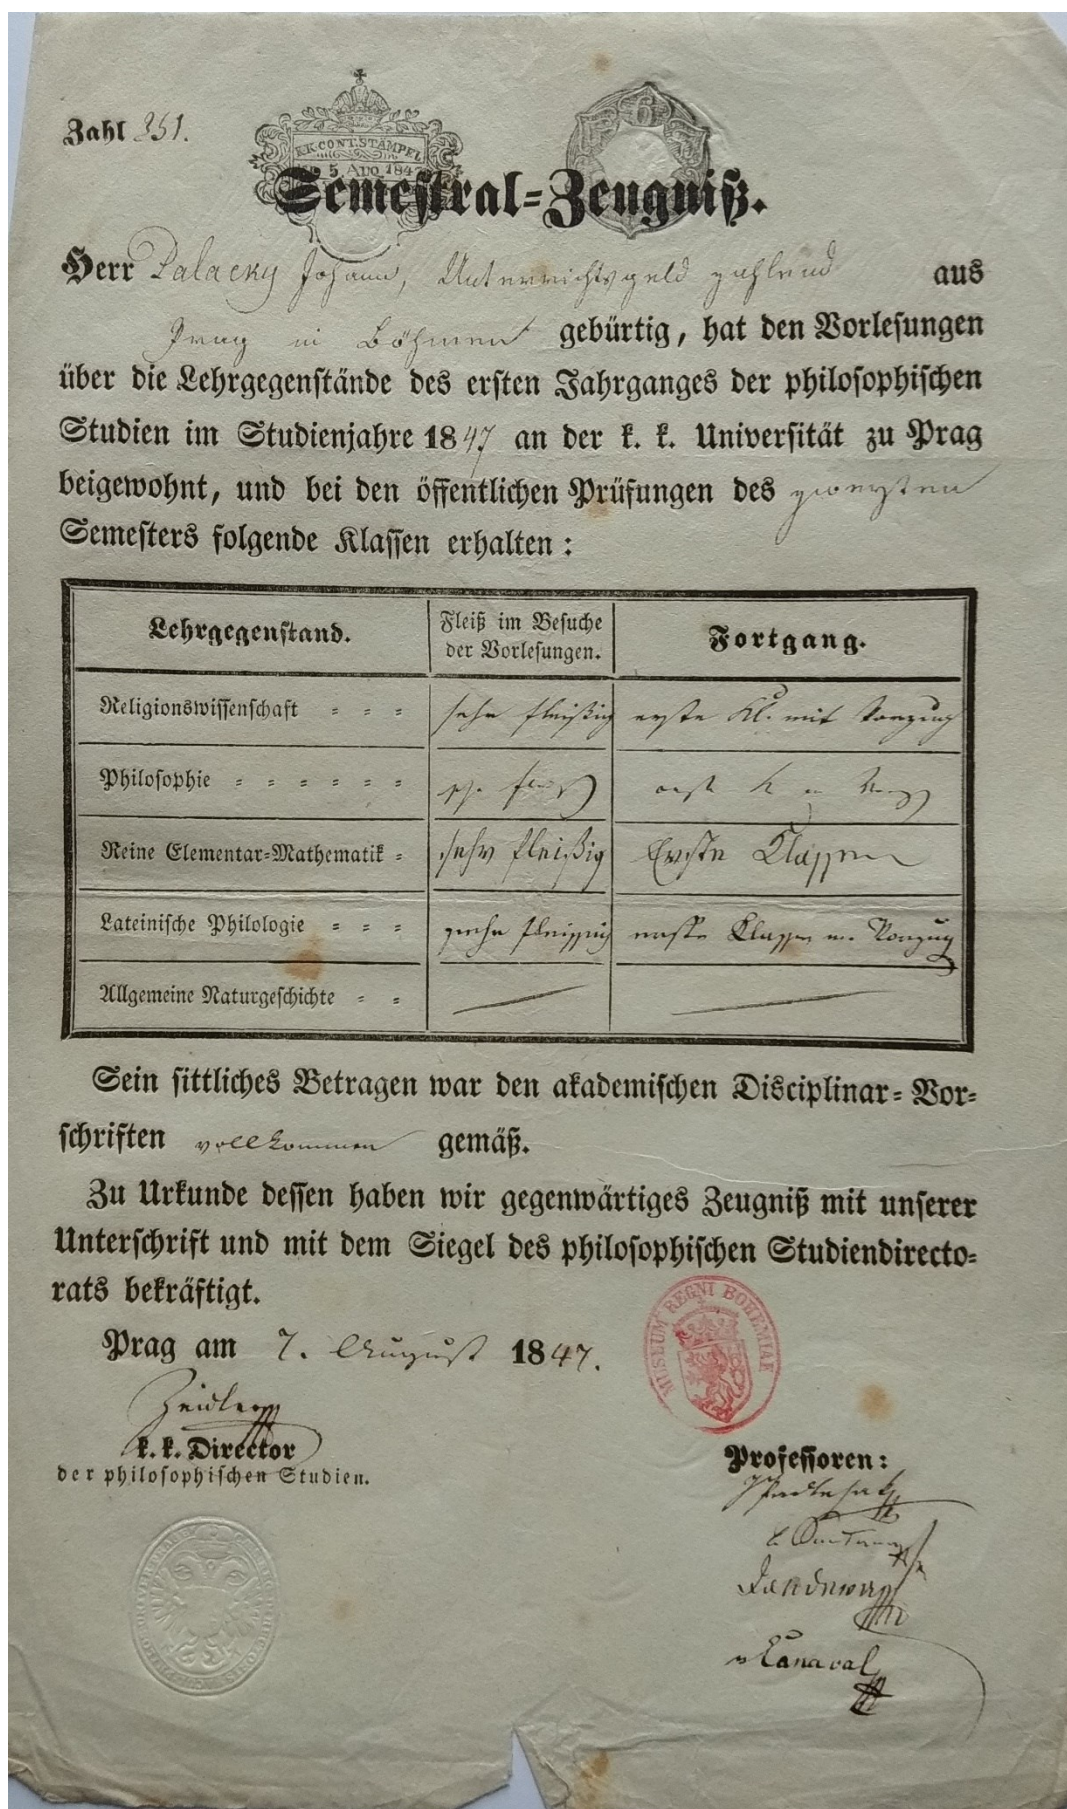 Zahl 351.
K.K. CONT. STÄMPEL
5. AUG. 184
6
Semestral-Zeugniß.
Herr Palacky Johann, Unterrichtsgeld zahlend aus
Prag in Böhmen gebürtig, hat den Vorlesungen
über die Lehrgegenstände des ersten Jahrganges der philosophischen
Studien im Studienjahre 1847 an der k. k. Universität zu Prag
beigewohnt, und bei den öffentlichen Prüfungen des zweyten
Semesters folgende Klassen erhalten:
Lehrgegenstand. Fleiß im Besuche der Vorlesungen. Fortgang.
Religionswissenschaft sehr fleißig erste Kl. mit Vorzug
Philosophie
Reine Elementar-Mathematik sehr fleißig Erste Klassen
Lateinische Philologie sehr fleissig erste Classe m. Vorzug
Allgemeine Naturgeschichte
Sein sittliches Betragen war den akademischen Disciplinar-Vor-
schriften vollkommen gemäß.
Zu Urkunde dessen haben wir gegenwärtiges Zeugniß mit unserer
Unterschrift und mit dem Siegel des philosophischen Studiendirecto-
rats bekräftigt.
MUSEUM REGNI BOHEMIAE
Prag am 7. August 1847.
Zeidler
k. k. Director
der philosophischen Studien.
Professoren:
Kanaval